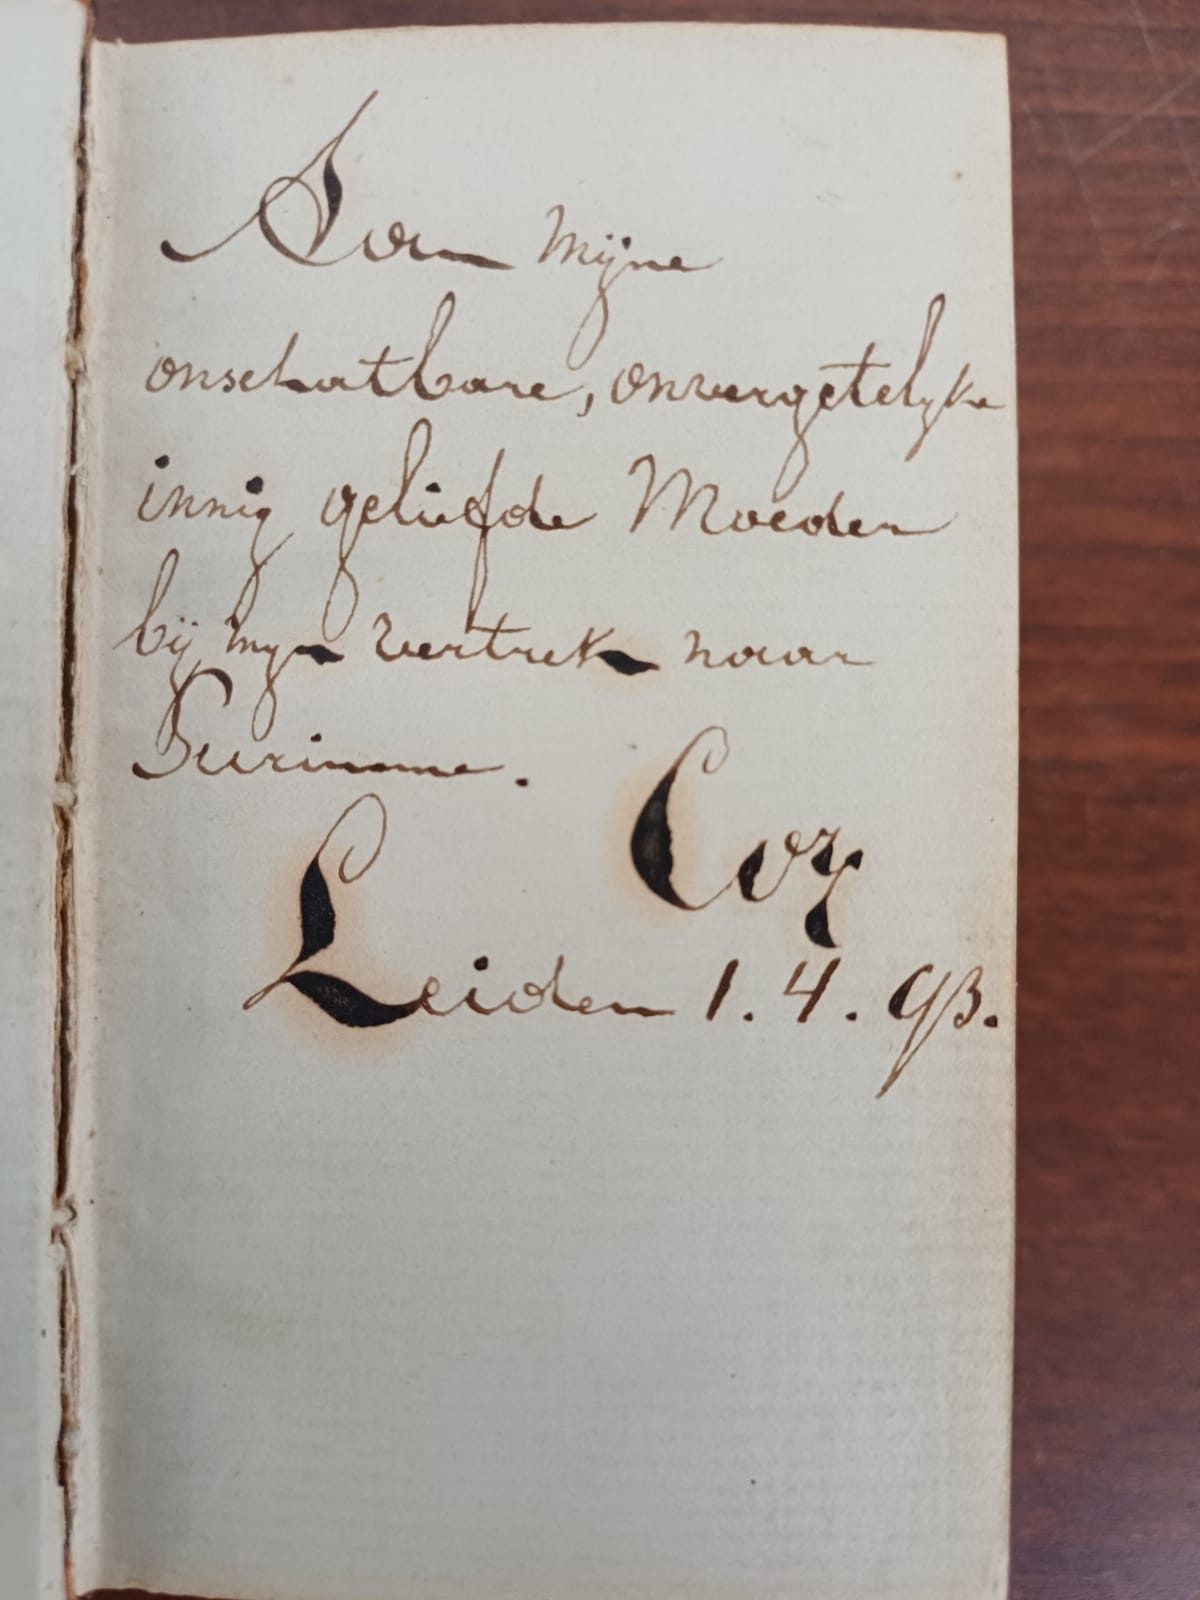 Aan mijne
onschatbare, onvergetelyke
innig geliefde Moeder
bij myn vertrek naar
Suriname.
Cor
Leiden 1.4.93.